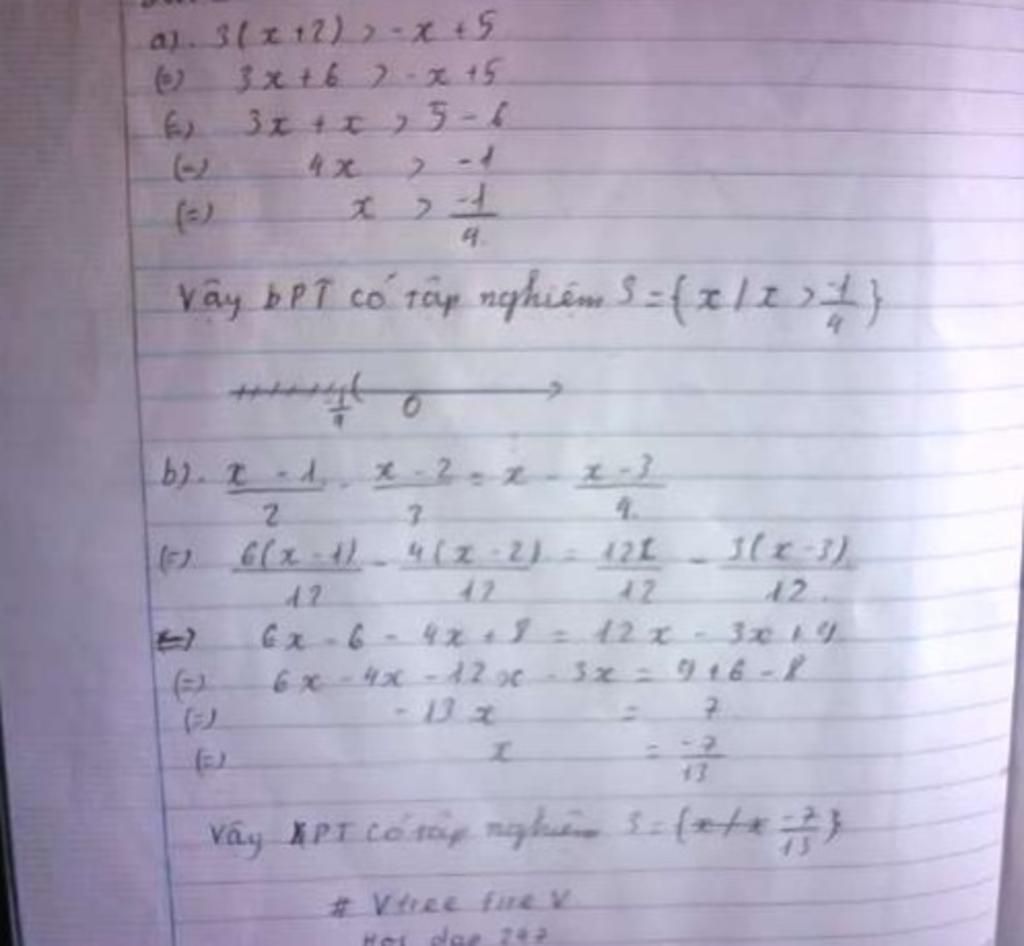 a). 3(x+2) > -x +5
(=) 3x + 6 > -x +5
(=) 3x + x > 5 - 6
(=) 4x > -1
(=) x > -1/4
Vậy bPT có tập nghiệm S = {x / x > -1/4}
-1/4 ( 0
b). x - 1/2 - x - 2/3 = x - x - 3/4
(=) 6(x - 1)/12 - 4(x - 2)/12 = 12x/12 - 3(x - 3)/12
(=) 6x - 6 - 4x + 8 = 12x - 3x + 9
(=) 6x - 4x - 12x - 3x = 9 + 6 - 8
(=) -13x = 7
(=) x = -7/13
Vậy PT có tập nghiệm S = {-7/13}